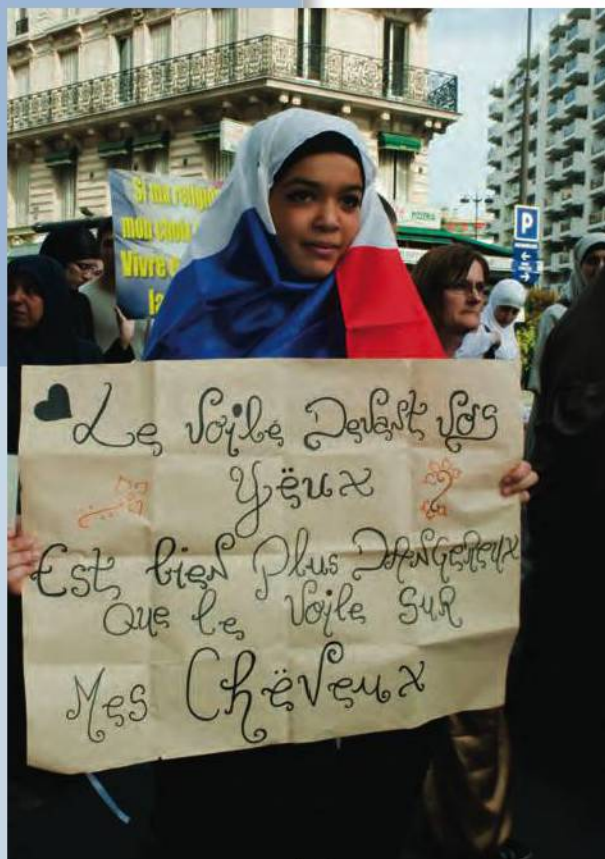 Si ma religion
mon choix
Vivre
la
P
PIZZERIA
Le Voile Devant Vos
Yëux
Est bien Plus DANGEREUX
Que le Voile SUR
Mes Chëveux